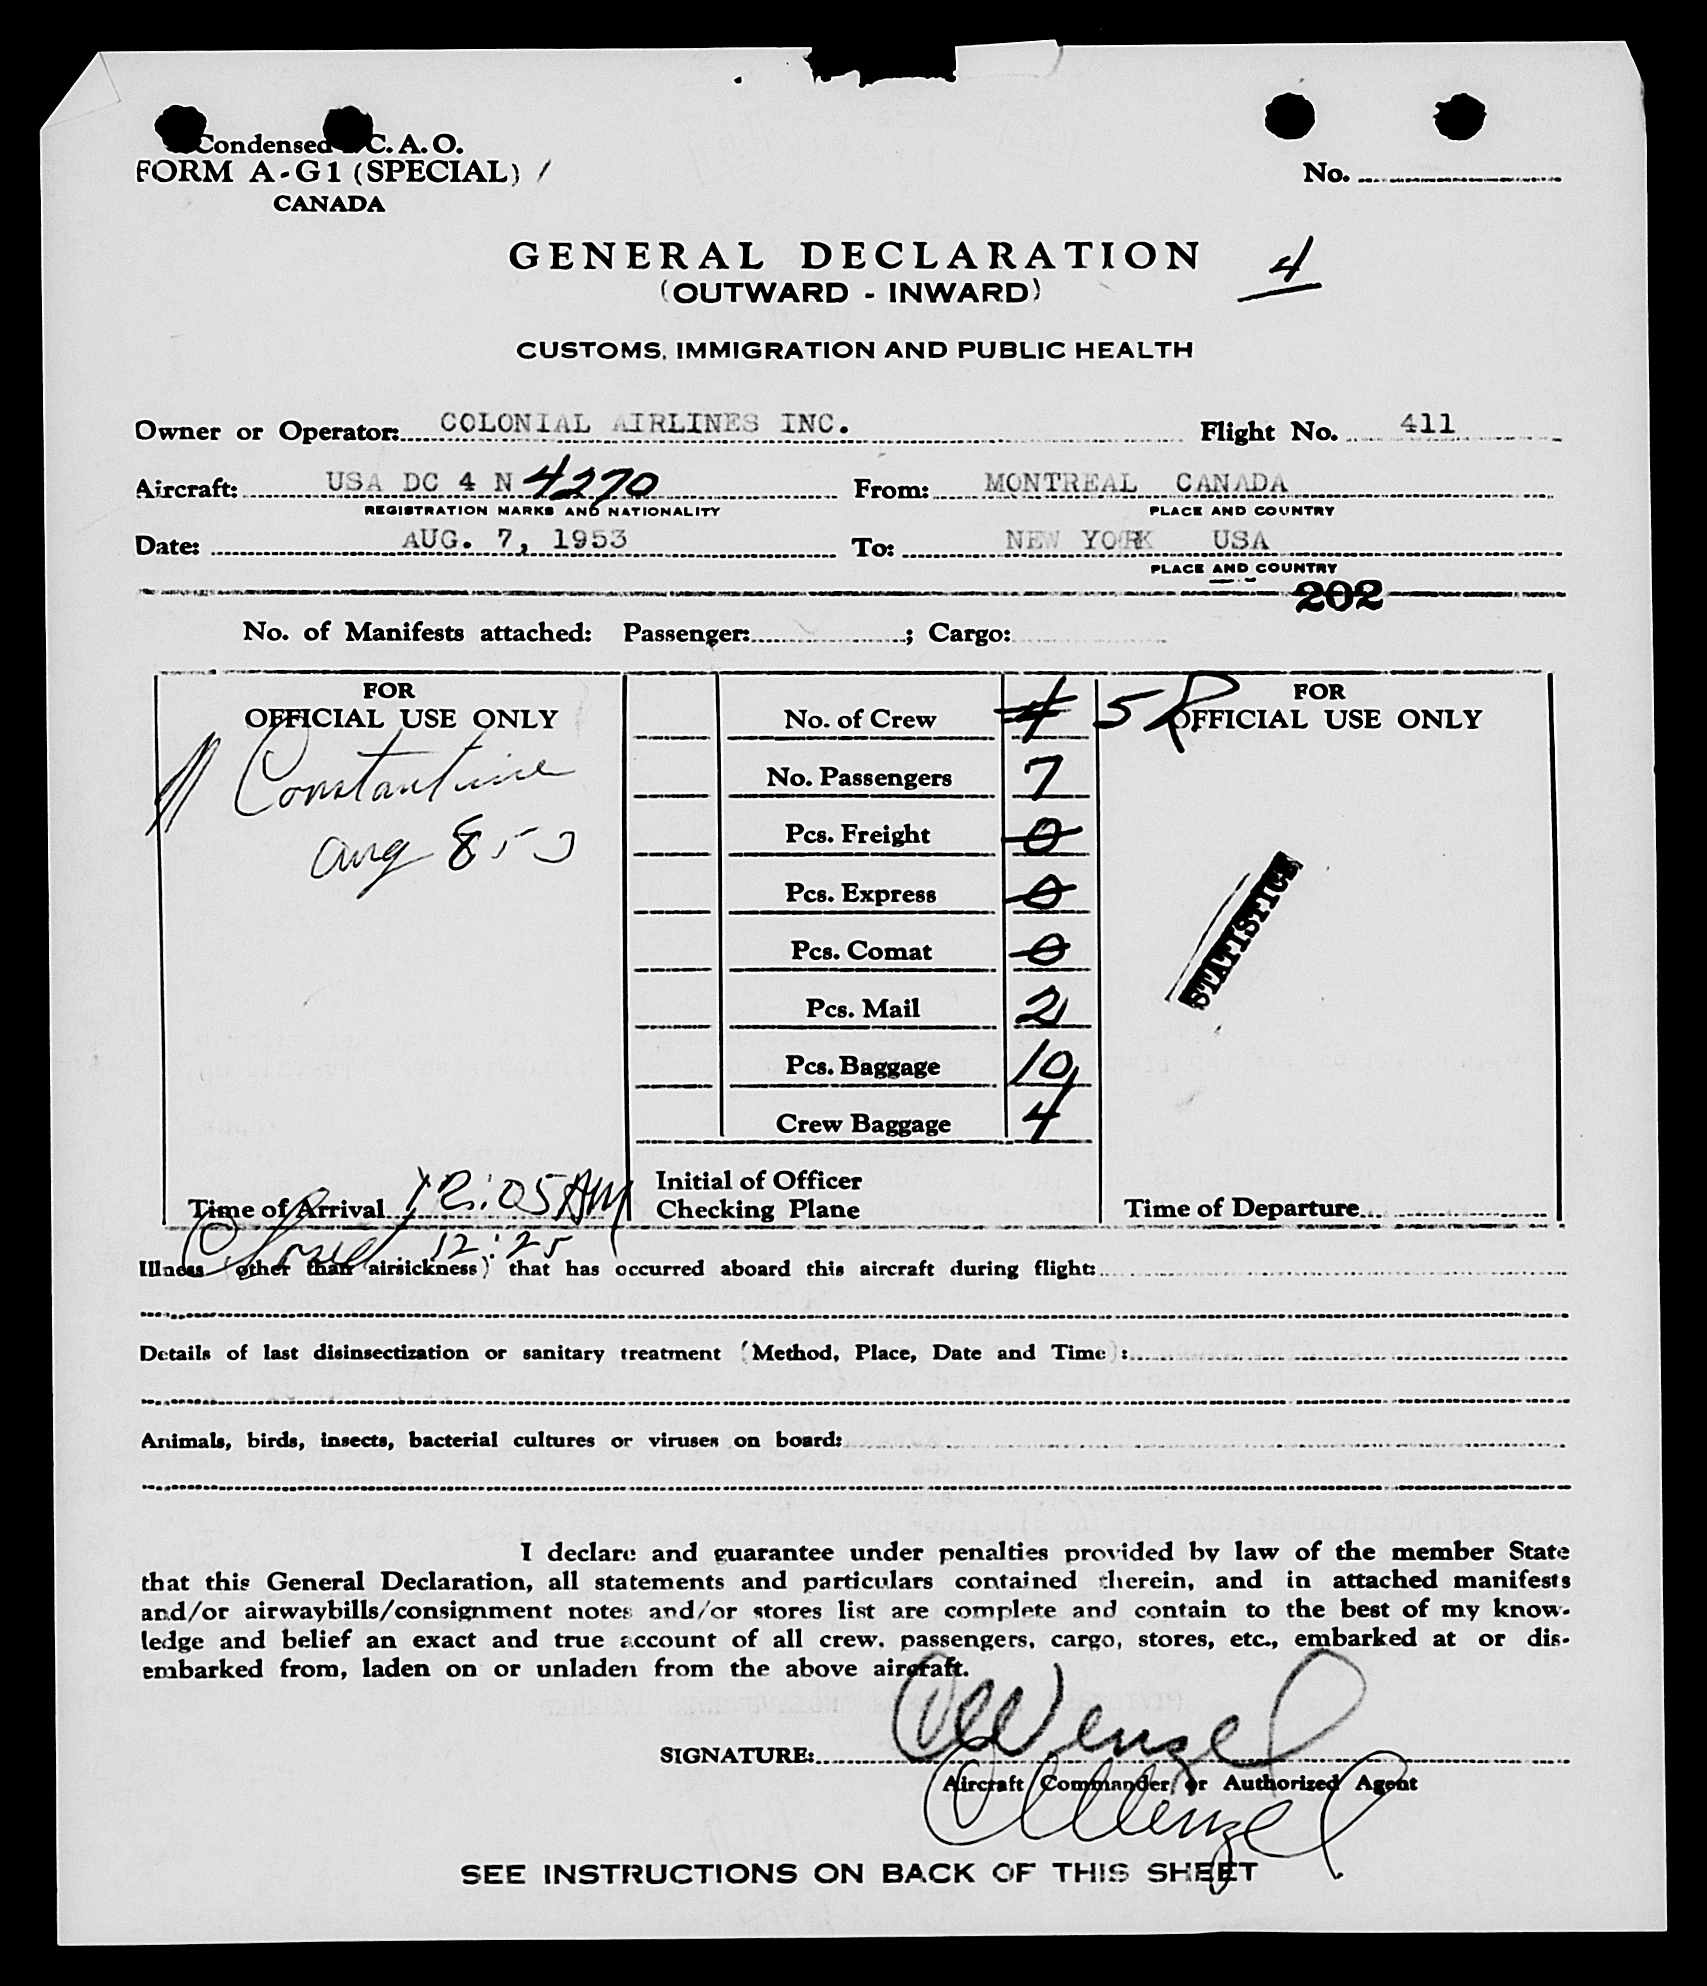 Condensed C. A. O.
FORM A-G1 (SPECIAL) /
CANADA
No.
GENERAL DECLARATION
4
(OUTWARD - INWARD)
CUSTOMS, IMMIGRATION AND PUBLIC HEALTH
Owner or Operator: COLONIAL AIRLINES INC. Flight No. 411
Aircraft: USA DC 4 N 4270 From: MONTREAL CANADA
REGISTRATION MARKS AND NATIONALITY PLACE AND COUNTRY
Date: AUG. 7, 1953 To: NEW YORK USA
PLACE AND COUNTRY
202
No. of Manifests attached: Passenger: ; Cargo:
FOR
OFFICIAL USE ONLY
Constantine
Aug 8 53
No. of Crew 4 5
No. Passengers 7
Pcs. Freight 0
Pcs. Express 0
Pcs. Comat 0
Pcs. Mail 2
Pcs. Baggage 10
Crew Baggage 4
FOR
OFFICIAL USE ONLY
STATISTICS
Time of Arrival 12:05 AM
12:25
Initial of Officer
Checking Plane
Time of Departure
Illness (other than airsickness) that has occurred aboard this aircraft during flight:
Details of last disinsectization or sanitary treatment (Method, Place, Date and Time):
Animals, birds, insects, bacterial cultures or viruses on board:
I declare and guarantee under penalties provided by law of the member State
that this General Declaration, all statements and particulars contained therein, and in attached manifests
and/or airwaybills/consignment notes and/or stores list are complete and contain to the best of my know-
ledge and belief an exact and true account of all crew, passengers, cargo, stores, etc., embarked at or dis-
embarked from, laden on or unladen from the above aircraft.
SIGNATURE: Wenzel
Aircraft Commander or Authorized Agent
Wenzel
SEE INSTRUCTIONS ON BACK OF THIS SHEET